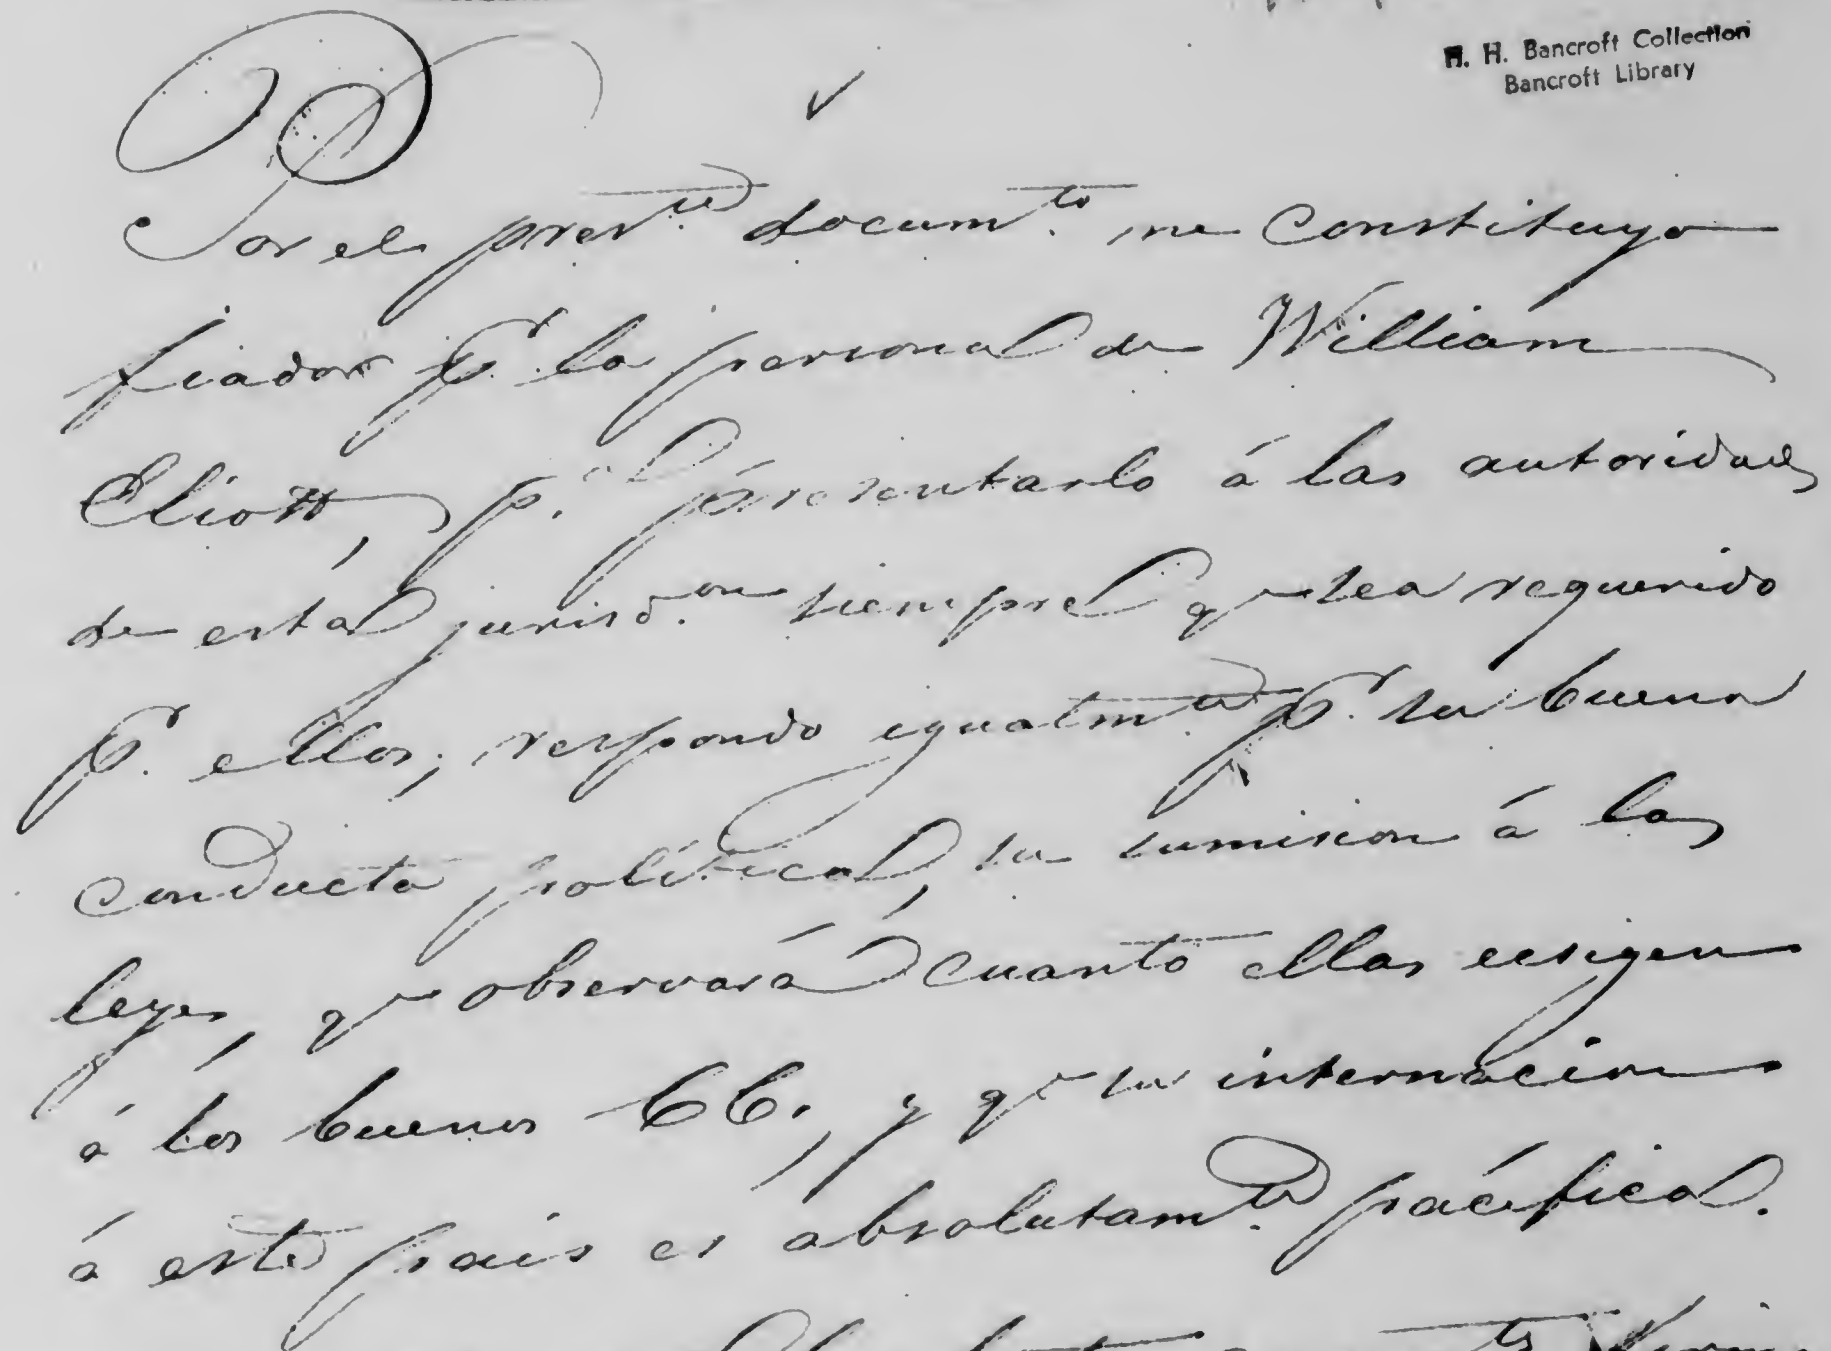 H. H. Bancroft Collection
Bancroft Library
Por el pres.te docum.to me constituyo
fiador p.r la personal de William
Eliott, p.a presentarlo á las autoridades
de esta jurisd.on siempre qe sea requerido
p.r ellos; respondo igualm.te p.r su buena
conducta política, su sumision á las
leyes, qe observará cuanto ellas ecsigen
á los buenos CC., y qe su internacion
á este pais es absolutam.te pácifica.